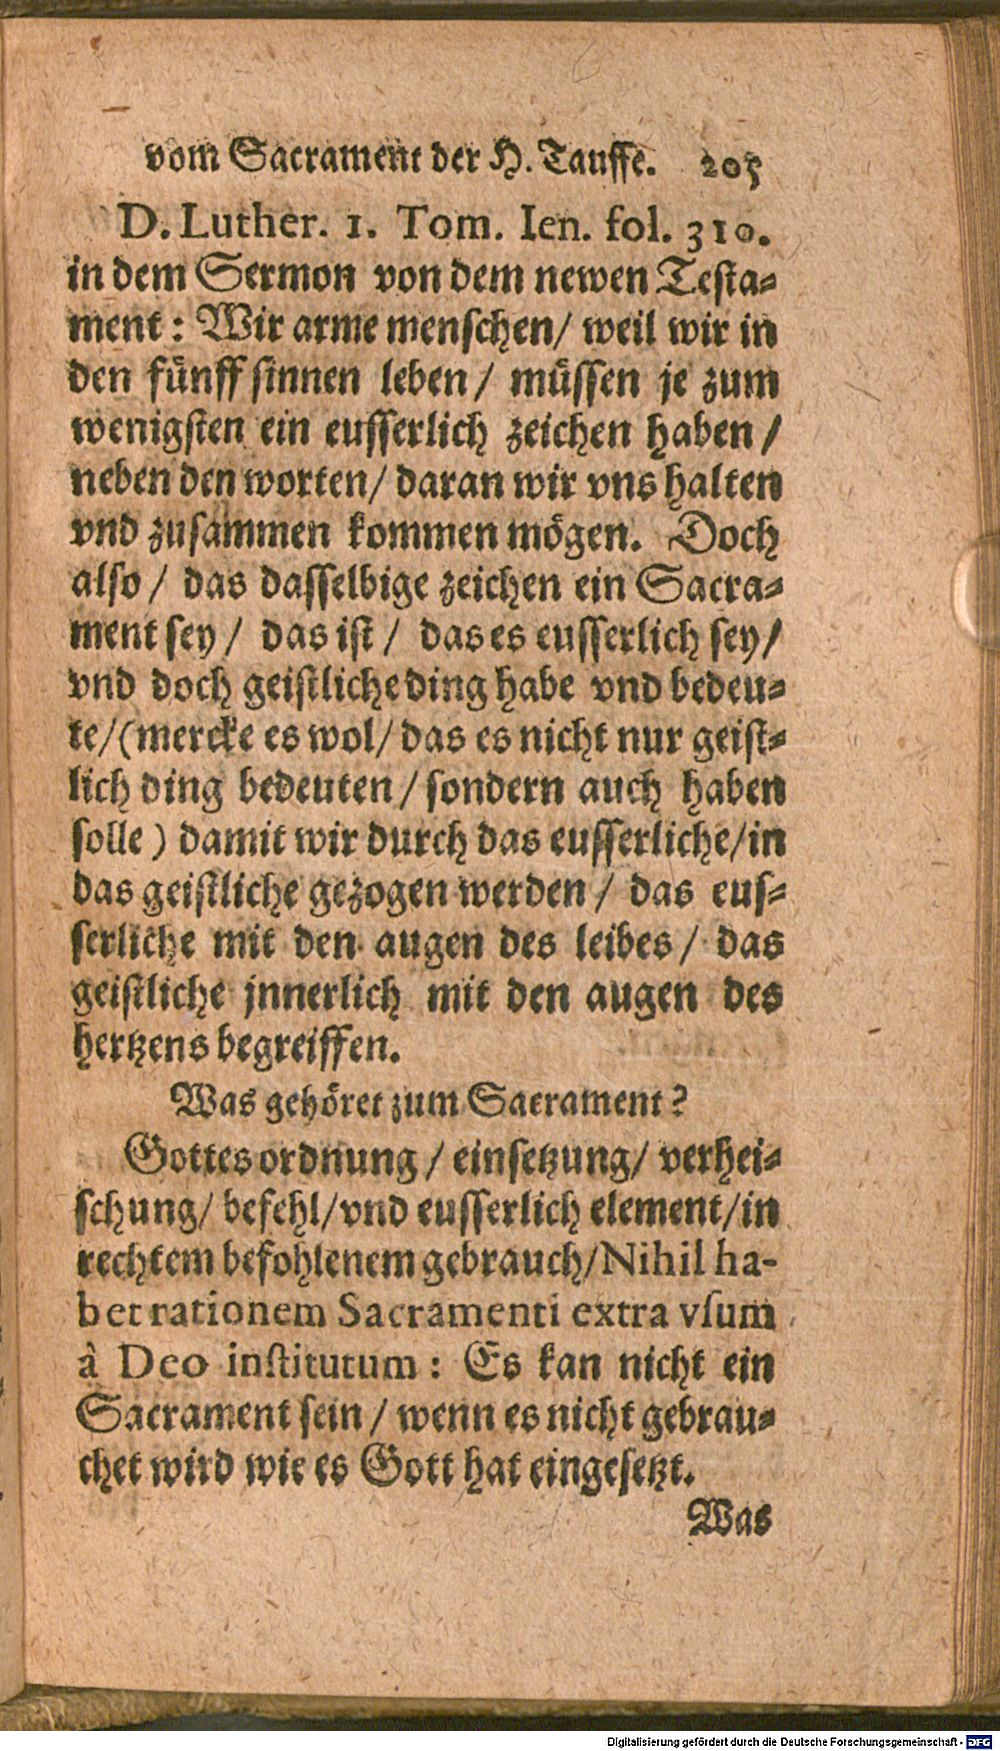 vom Sacrament der H. Tauffe. 205
D. Luther. 1. Tom. Ien. fol. 310.
in dem Sermon von dem newen Testa-
ment: Wir arme menschen/ weil wir in
den fünff sinnen leben/ müssen je zum
wenigsten ein eusserlich zeichen haben/
neben den worten/ daran wir vns halten
vnd zusammen kommen mögen. Doch
also/ das dasselbige zeichen ein Sacra-
ment sey/ das ist/ das es eusserlich sey/
vnd doch geistliche ding habe vnd bedeu-
te/ (mercke es wol/ das es nicht nur geist-
lich ding bedeuten/ sondern auch haben
solle) damit wir durch das eusserliche/ in
das geistliche gezogen werden/ das eus-
serliche mit den augen des leibes/ das
geistliche jnnerlich mit den augen des
hertzens begreiffen.
Was gehöret zum Sacrament?
Gottes ordnung/ einsetzung/ verhei-
schung/ befehl/ vnd eusserlich element/ in
rechtem befohlenem gebrauch/ Nihil ha-
bet rationem Sacramenti extra vsum
à Deo institutum: Es kan nicht ein
Sacrament sein/ wenn es nicht gebrau-
chet wird wie es Gott hat eingesetzt.
Was
Digitalisierung gefördert durch die Deutsche Forschungsgemeinschaft - DFG